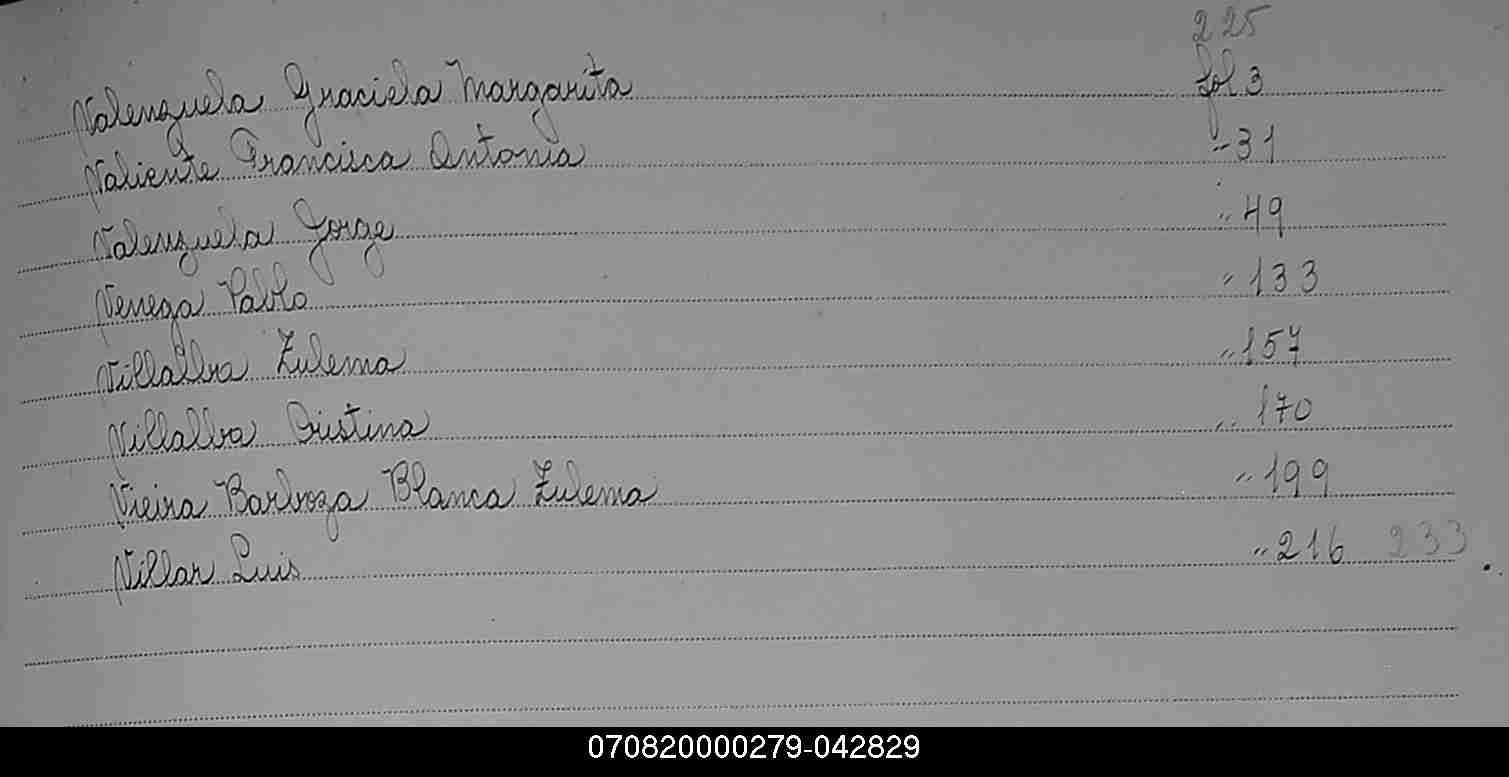 225
Valenzuela Graciela Margarita fol 3
Valiente Francisca Antonia " 31
Valenzuela Jorge " 49
Venega Pablo " 133
Villalba Zulema " 157
Villalba Cristina " 170
Vieira Barboza Blanca Zulema " 199
Villar Luis " 216 233
070820000279-042829